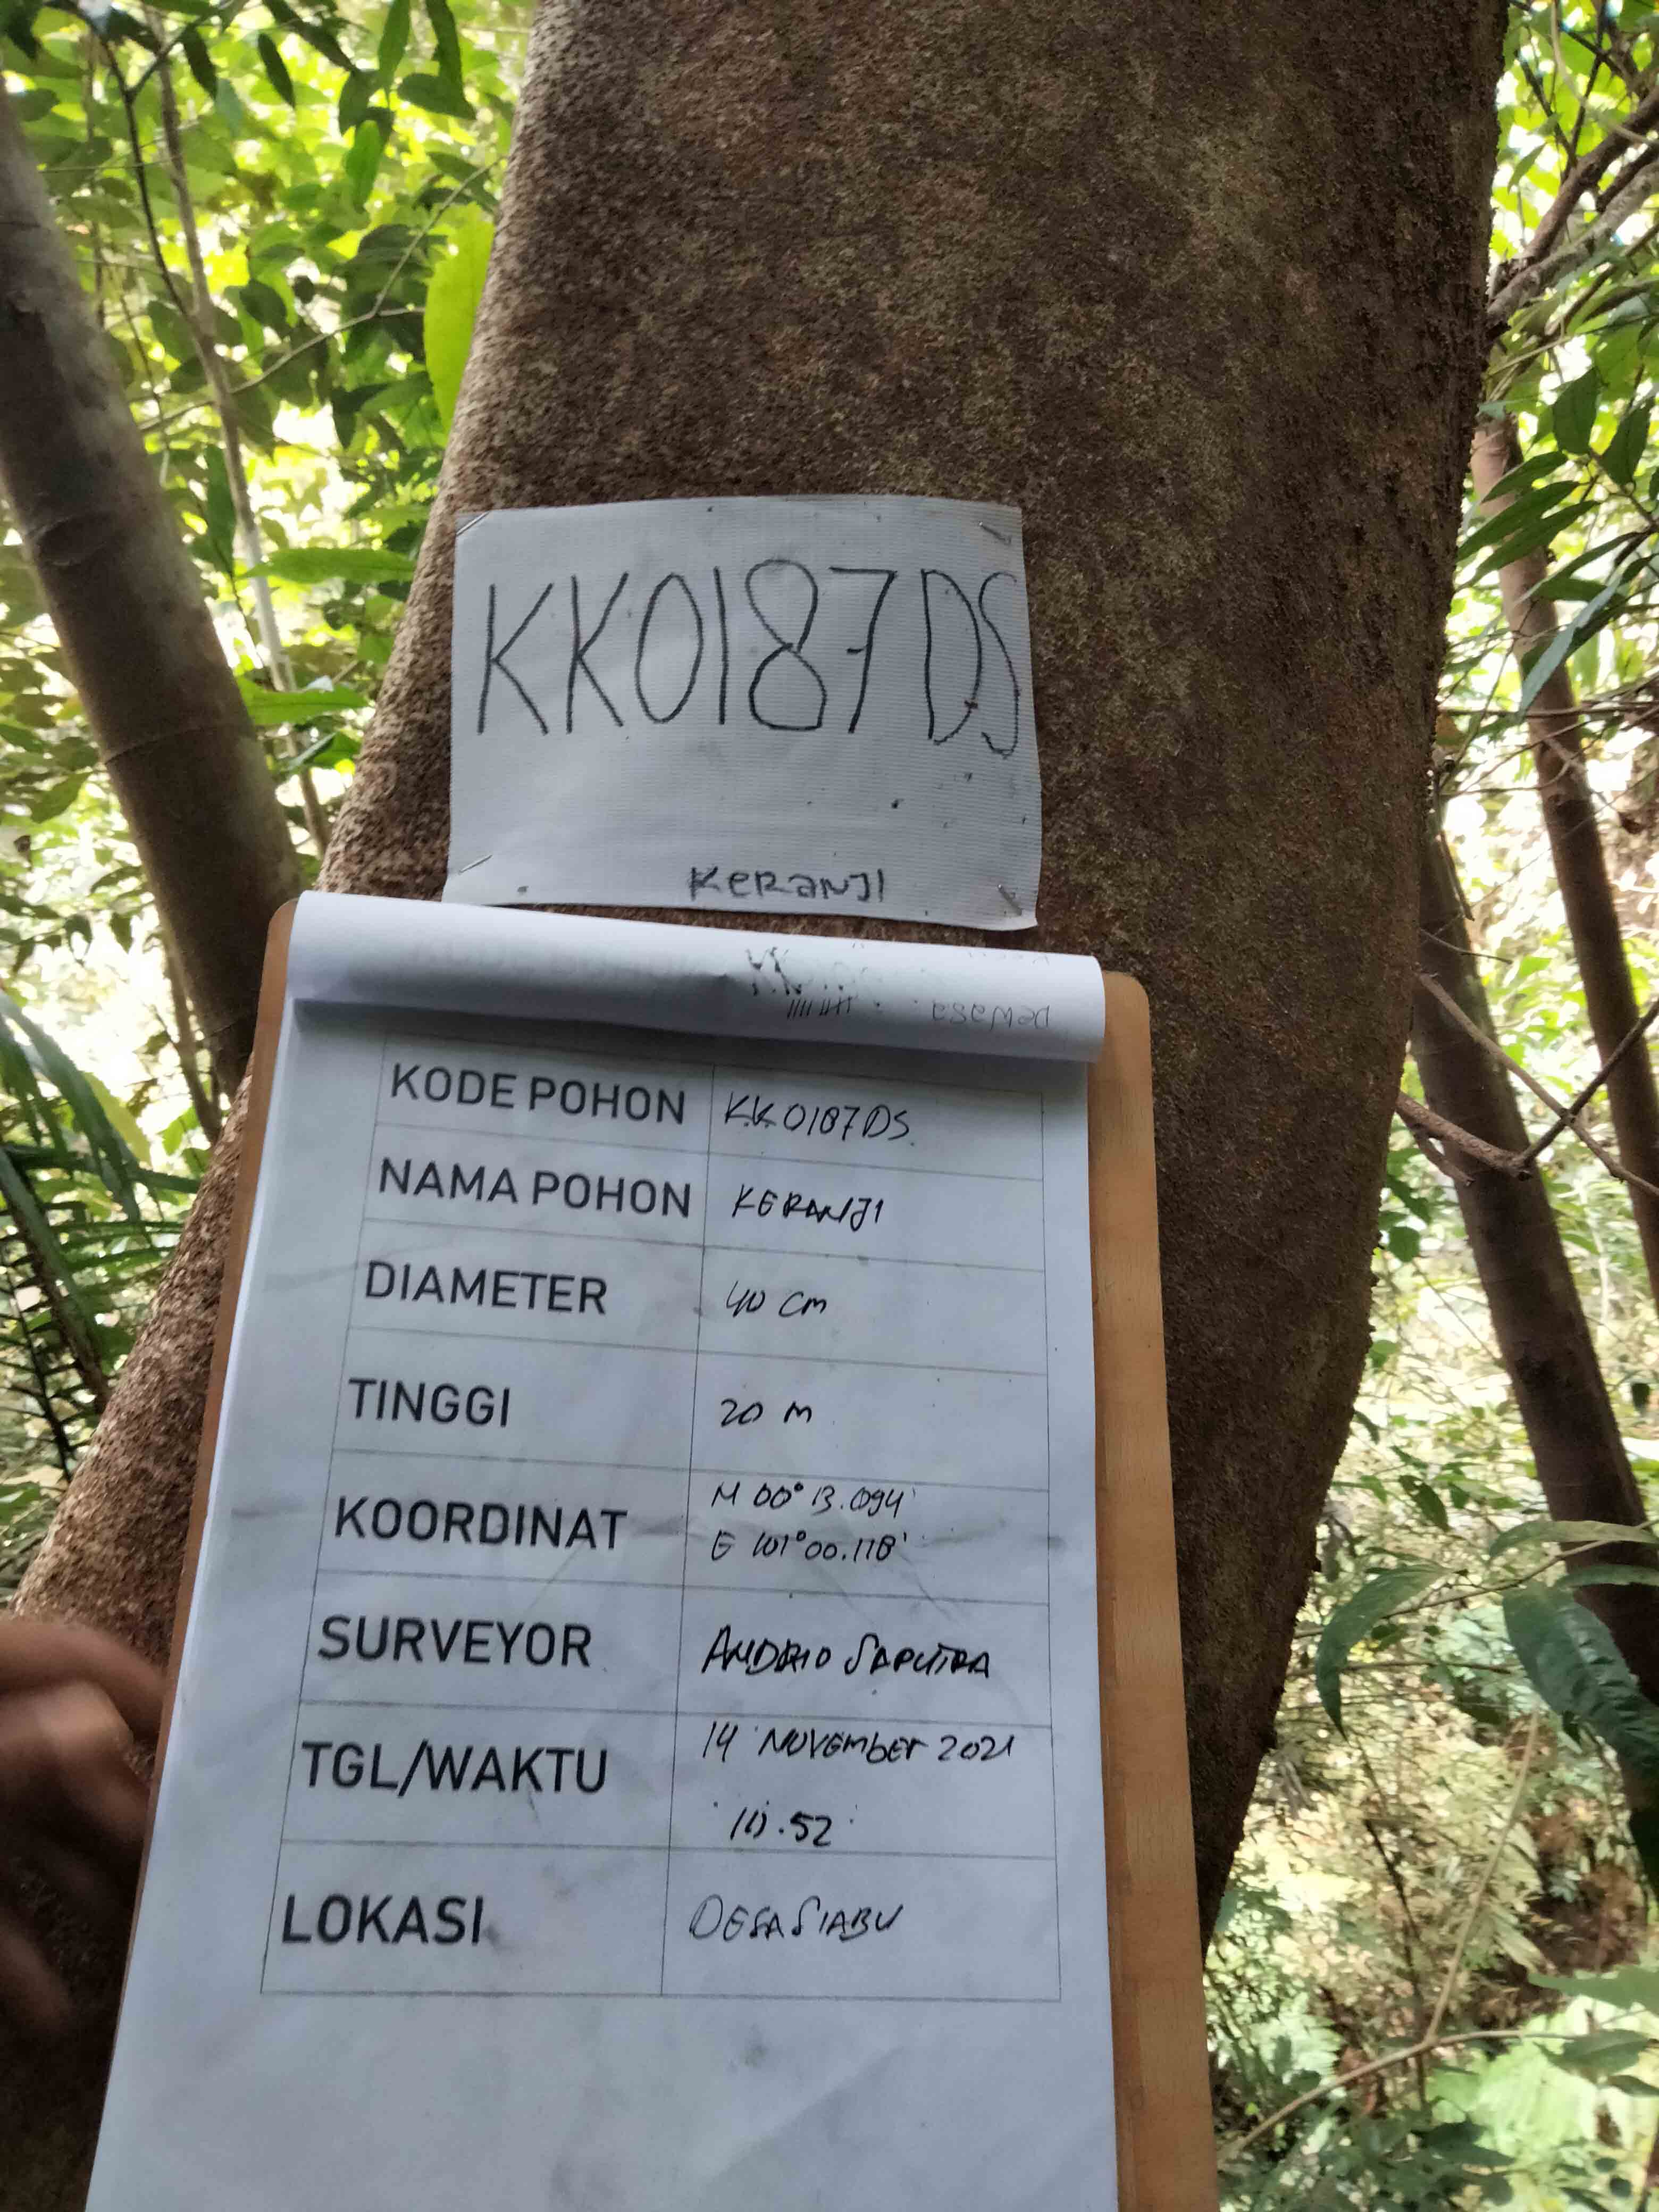 KK0187DS
KERANJI
Dewasa
KODE POHON KK0187DS
NAMA POHON KERANJI
DIAMETER 40 cm
TINGGI 20 M
KOORDINAT N 00° 13.094'
E 101°00.118'
SURVEYOR ANDRIO SAPUTRA
TGL/WAKTU 14 NOVEMBER 2021
10.52
LOKASI DESA SIABU